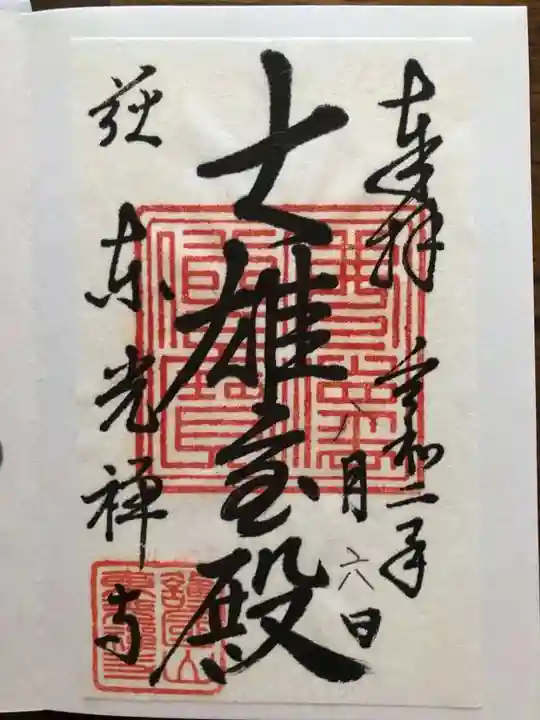 奉拝
令和二年
八月六日
大雄宝殿
萩
東光禅寺